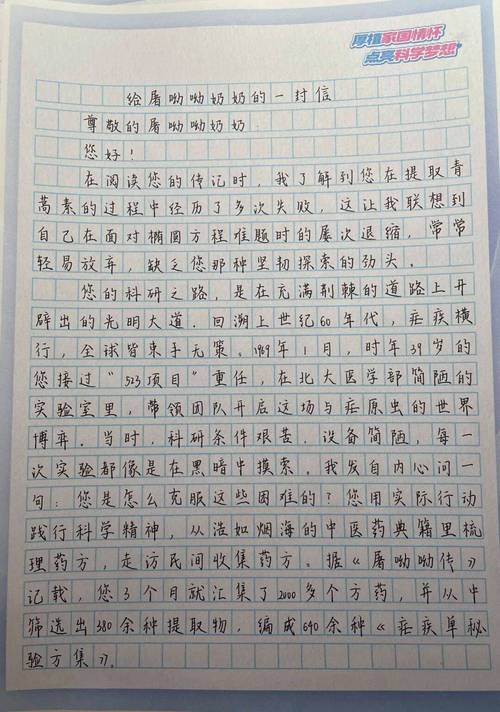 厚植家国情怀
点亮科学梦想
给屠呦呦奶奶的一封信
尊敬的屠呦呦奶奶
您好！
在阅读您的传记时，我了解到您在提取青
蒿素的过程中经历了多次失败，这让我联想到
自己在面对椭圆方程难题时的屡次退缩，常常
轻易放弃，缺乏您那种坚韧探索的劲头。
您的科研之路，是在充满荆棘的道路上开
辟出的光明大道。回溯上世纪60年代，疟疾横
行，全球皆束手无策。1969年1月，时年39岁的
您接过“523项目”重任，在北大医学部简陋的
实验室里，带领团队开启这场与疟原虫的世界
博弈。当时，科研条件艰苦，设备简陋，每一
次实验都像是在黑暗中摸索。我发自内心问一
句：您是怎么克服这些困难的？您用实际行动
践行科学精神，从浩如烟海的中医药典籍里梳
理药方，走访民间收集药方。据《屠呦呦传》
记载，您3个月就汇集了2000多个方药，并从中
筛选出380余种提取物，编成640余种《疟疾单秘
验方集》。